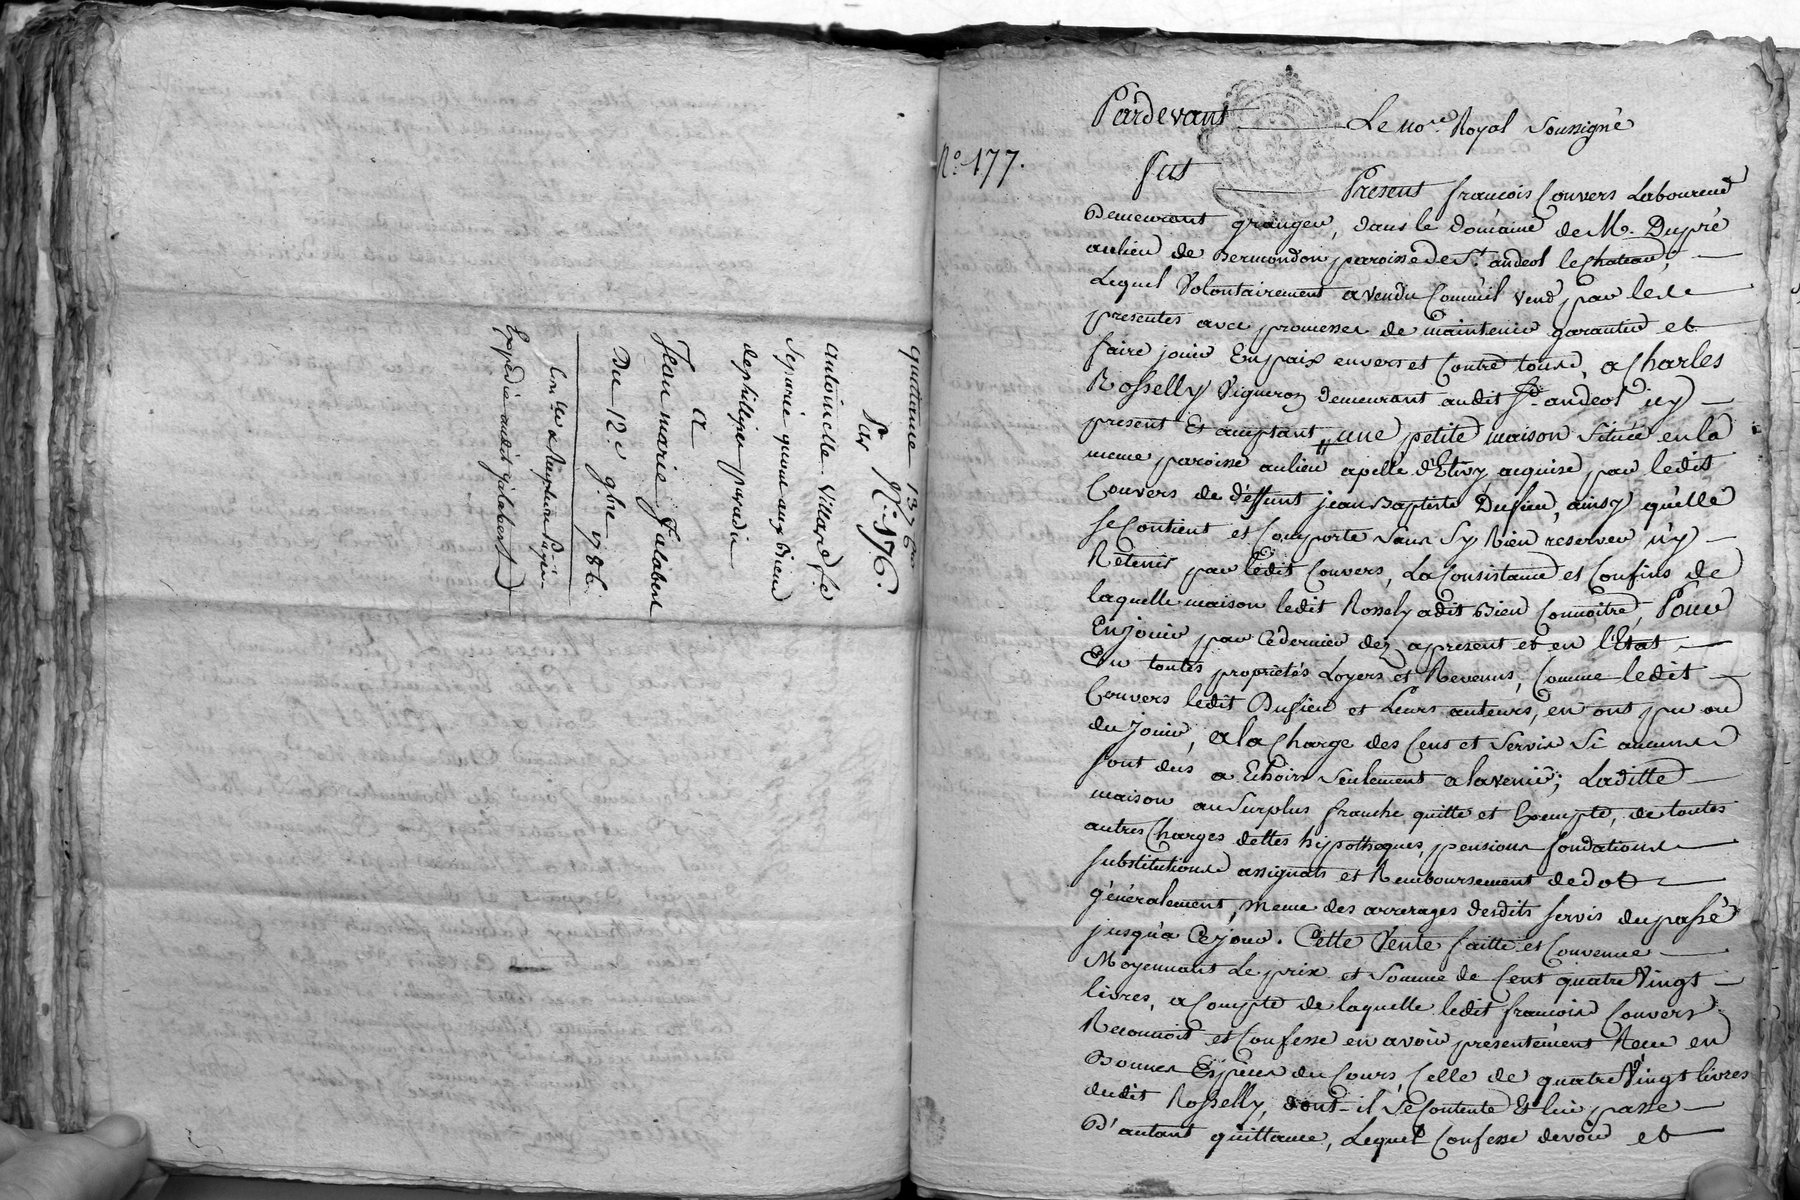 quittance 1376#
N.º 176.
Par
antoinette Villard fe
Separée quant aux Biens
de philliper paradis
a
Jean marie Jalabert
Du 12.e 9bre 1786.
Expedié audit Jalabert
N.º 177.
Pardevant Le no.re Royal Soussigné
fut
Present francois Couvers Laboureur
Demeurant granger, dans le domaine de M. Dupré
aulieu de Bermondon paroisse de St. andeol le chateau,
Lequel Volontairement a vendu Comm'il vend par les
presentes avec promesses de maintenir garantir et
faire jouir En paix envers et Contre tous, a Charles
Rosselly Vigneron demeurant audit St. andeol icy
present Et acceptant, une petite maison Située en la
meme paroisse aulieu apellé d'Etivy, acquise par ledit
Couvers de deffunt jean Baptiste Dufieu, ainsy qu'elle
se Contient et Comporte sans s'y Rien reserver n'y
Retenir par ledit Couvers, La Consistance et Confins de
laquelle maison ledit Rossely a dit Bien Connoitre, Pour
En jouir par Cedernier dez apresent et en l'Etat
En toutes propriétés Loyers et Revenus, Comme ledit
Couvers ledit Dufieu et Leurs auteurs, en ont pu ou
du Jouir, a la Charge des Cens et Servis Si aucuns
sont dus a Echoir seulement a lavenir; Laditte
maison au Surplus franche quitte et Exempte, de toutes
autres Charges dettes hipotheques, pensions fondations
substitutions assignats et Remboursement de dot
généralement, meme des arrerages desdits servis du passé
jusqu'a Cejour. Cette Vente faitte et Convenue
Moyennant Le prix et Somme de Cent quatre Vingt
livres, a Compte de laquelle ledit francois Couvers
Reconnoit et Confesse en avoir presentement Reçu en
Bonnes Espèces du Cours, Celle de quatre Vingt livres
dudit Rosselly, dont il se Contente Et lui passe
D'autant quittance, Lequel Confesse devoir et